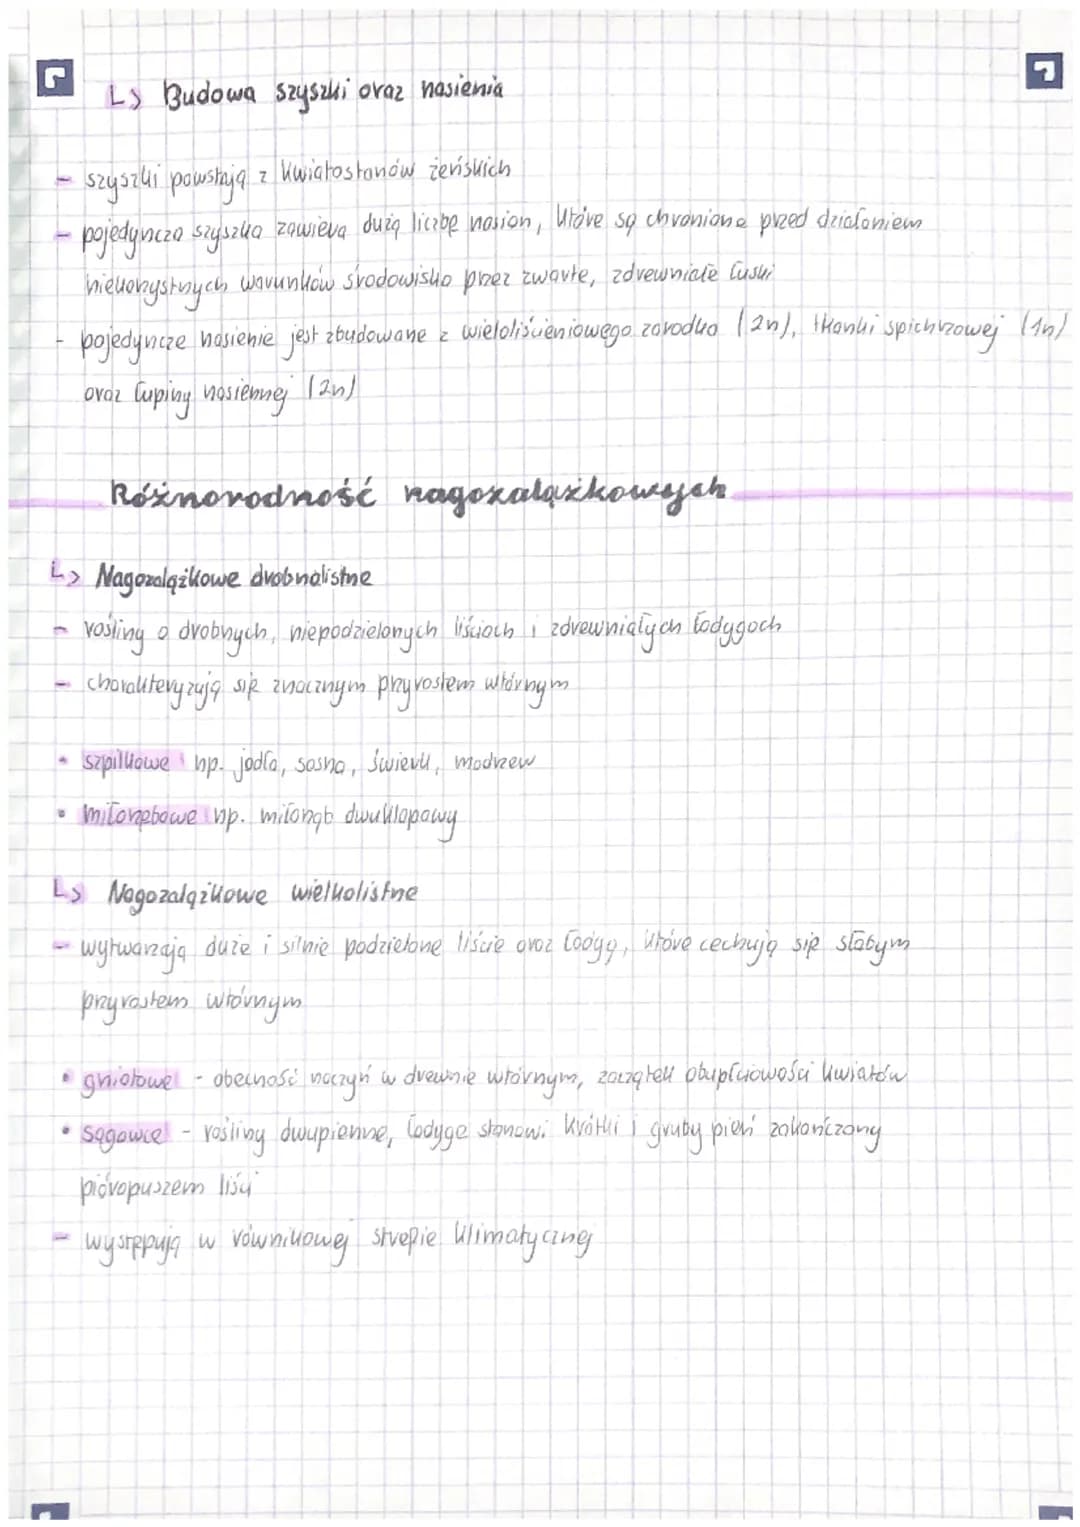 ↳ Budowa szyszki oraz nasienia
- szyszki powstają z kwiatostanów żeńskich
- pojedyncza szyszka zawiera dużą liczbę nasion, które są chronione przed działaniem
niekorzystnych warunków środowiska przez zwarte, zdrewniałe łuski
- pojedyncze nasienie jest zbudowane z wieloliścieniowego zarodka (2n), tkanki spichrzowej (1n)
oraz łupiny nasiennej (2n)
Różnorodność nagozalążkowych
↳ Nagozalążkowe drobnolistne
- rośliny o drobnych, niepodzielonych liściach i zdrewniałych łodygach
- charakteryzują się znacznym przyrostem wtórnym
• szpilkowe np. jodła, sosna, świerk, modrzew
• miłorzębowe np. miłorząb dwuklapowy
↳ Nagozalążkowe wielkolistne
- wytwarzają duże i silnie podzielone liście oraz łodygi, które cechują się słabym
przyrostem wtórnym
• gniotowe - obecność naczyń w drewnie wtórnym, początek obupłciowości kwiatów
• sagowce - rośliny dwupienne, łodygę stanowi krótki i gruby pień zakończony
pióropuszem liści
- występują w równikowej strefie klimatycznej